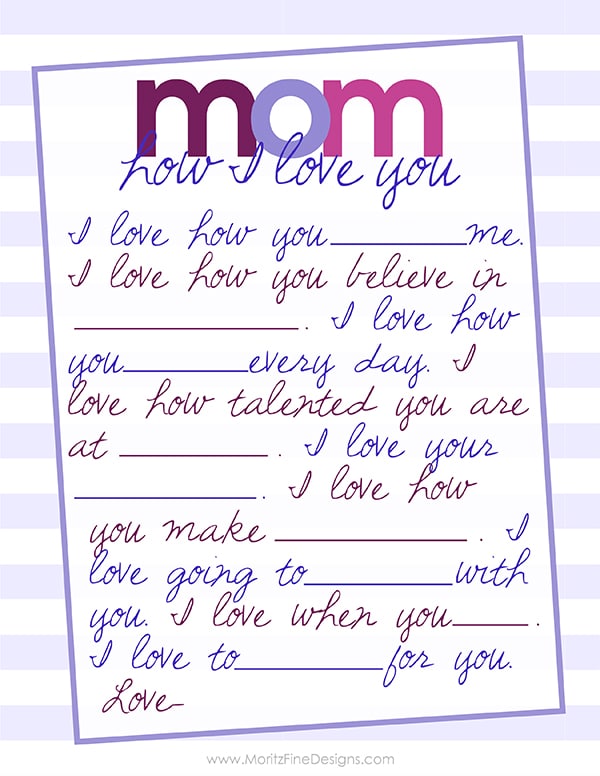 mom
how I love you
I love how you__________me.
I love how you believe in
__________________. I love how
you__________every day. I
love how talented you are
at ____________. I love your
______________. I love how
you make _______________. I
love going to___________with
you. I love when you______.
I love to___________for you.
Love
www.MoritzFineDesigns.com